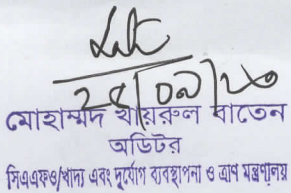 ২৫/০৯/২৩
মোহাম্মদ খায়রুল বাতেন
অডিটর
সিএএফও/খাদ্য এবং দুর্যোগ ব্যবস্থাপনা ও ত্রাণ মন্ত্রণালয়